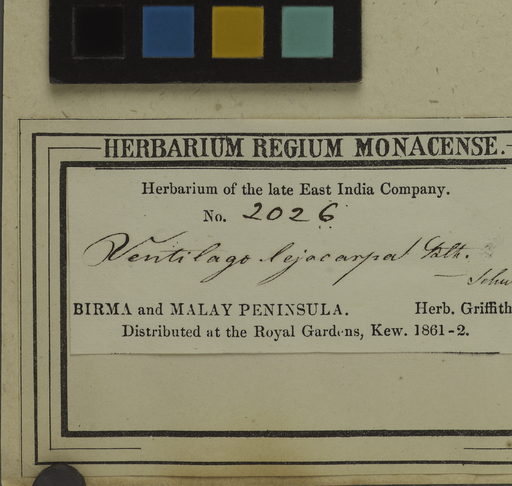 HERBARIUM REGIUM MONACENSE.
Herbarium of the late East India Company.
No. 2026
Ventilago lejocarpa
BIRMA and MALAY PENINSULA. Herb. Griffith
Distributed at the Royal Gardens, Kew. 1861-2.